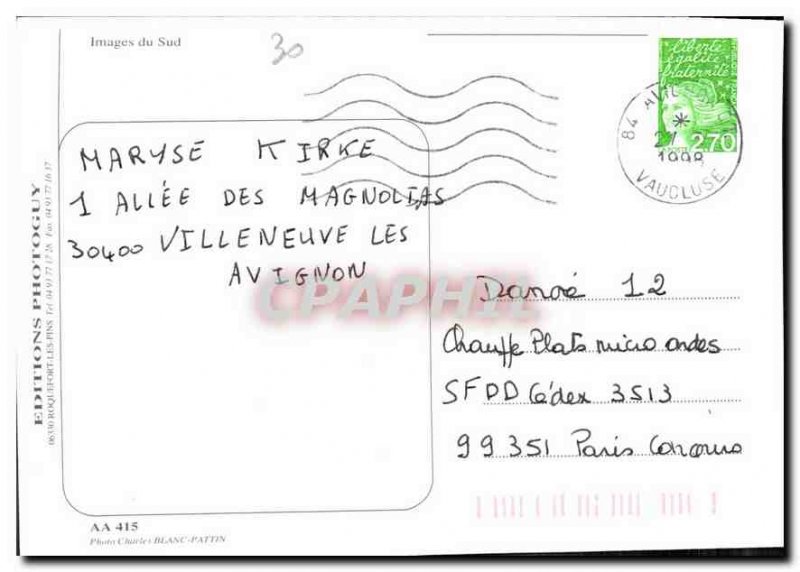 Images du Sud
30
liberté
égalité
fraternité
2,70
84 AVI
27
1998
VAUCLUSE
MARYSE KIRKE
1 ALLÉE DES MAGNOLIAS
30400 VILLENEUVE LES
AVIGNON
CPAPHIL
Danoé 12
Chauffe Plats micro ondes
SFDD Cédex 3513
99351 Paris Concours
EDITIONS PHOTOGUY
06330 ROQUEFORT-LES-PINS Tél. 04 93 77 17 28 Fax. 04 93 77 16 17
AA 415
Photo Charles BLANC-PATTIN